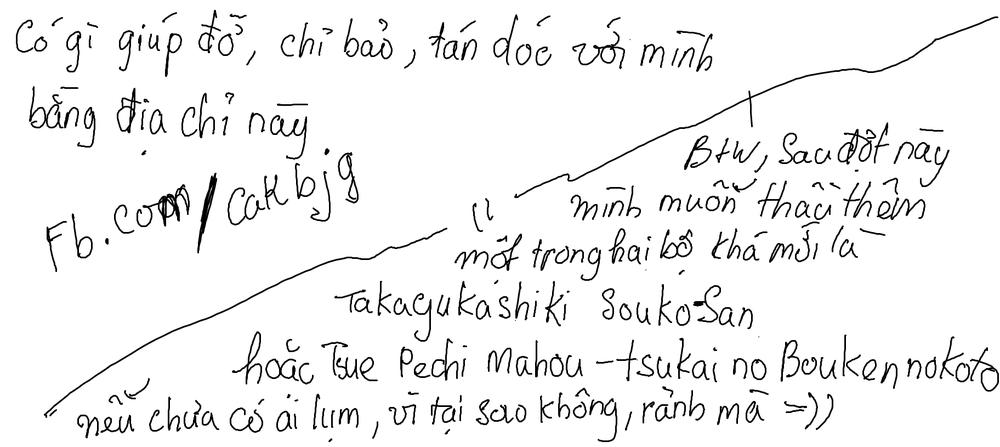 Có gì giúp đỡ, chỉ bảo, tán dóc với mình
bằng địa chỉ này
Fb.com/cakbjg
Btw, sau đợt này
mình muốn thầu thêm
một trong hai bộ khá mới là
Takayukashiki Souko-San
hoặc Tsue Pechi Mahou-tsukai no Bouken nokoto
nếu chưa có ai lụm, vì tại sao không, rảnh mà =))